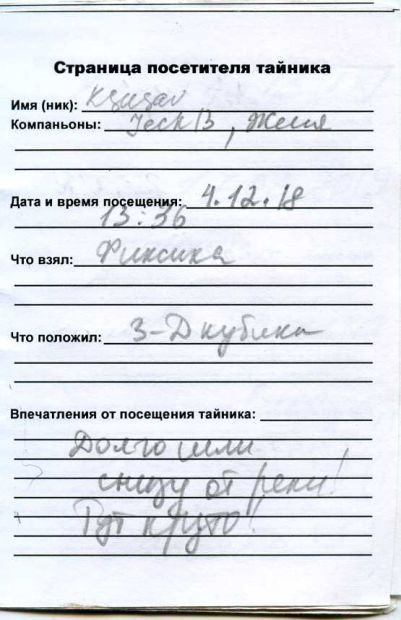 Страница посетителя тайника
Имя (ник):
Компаньоны: JeckB, Женя
Дата и время посещения: 4.12.18
13:36
Что взял: Фиксика
Что положил: 3-Д кубика
Впечатления от посещения тайника:
Долго шли
снизу от реки!
Тут круто!